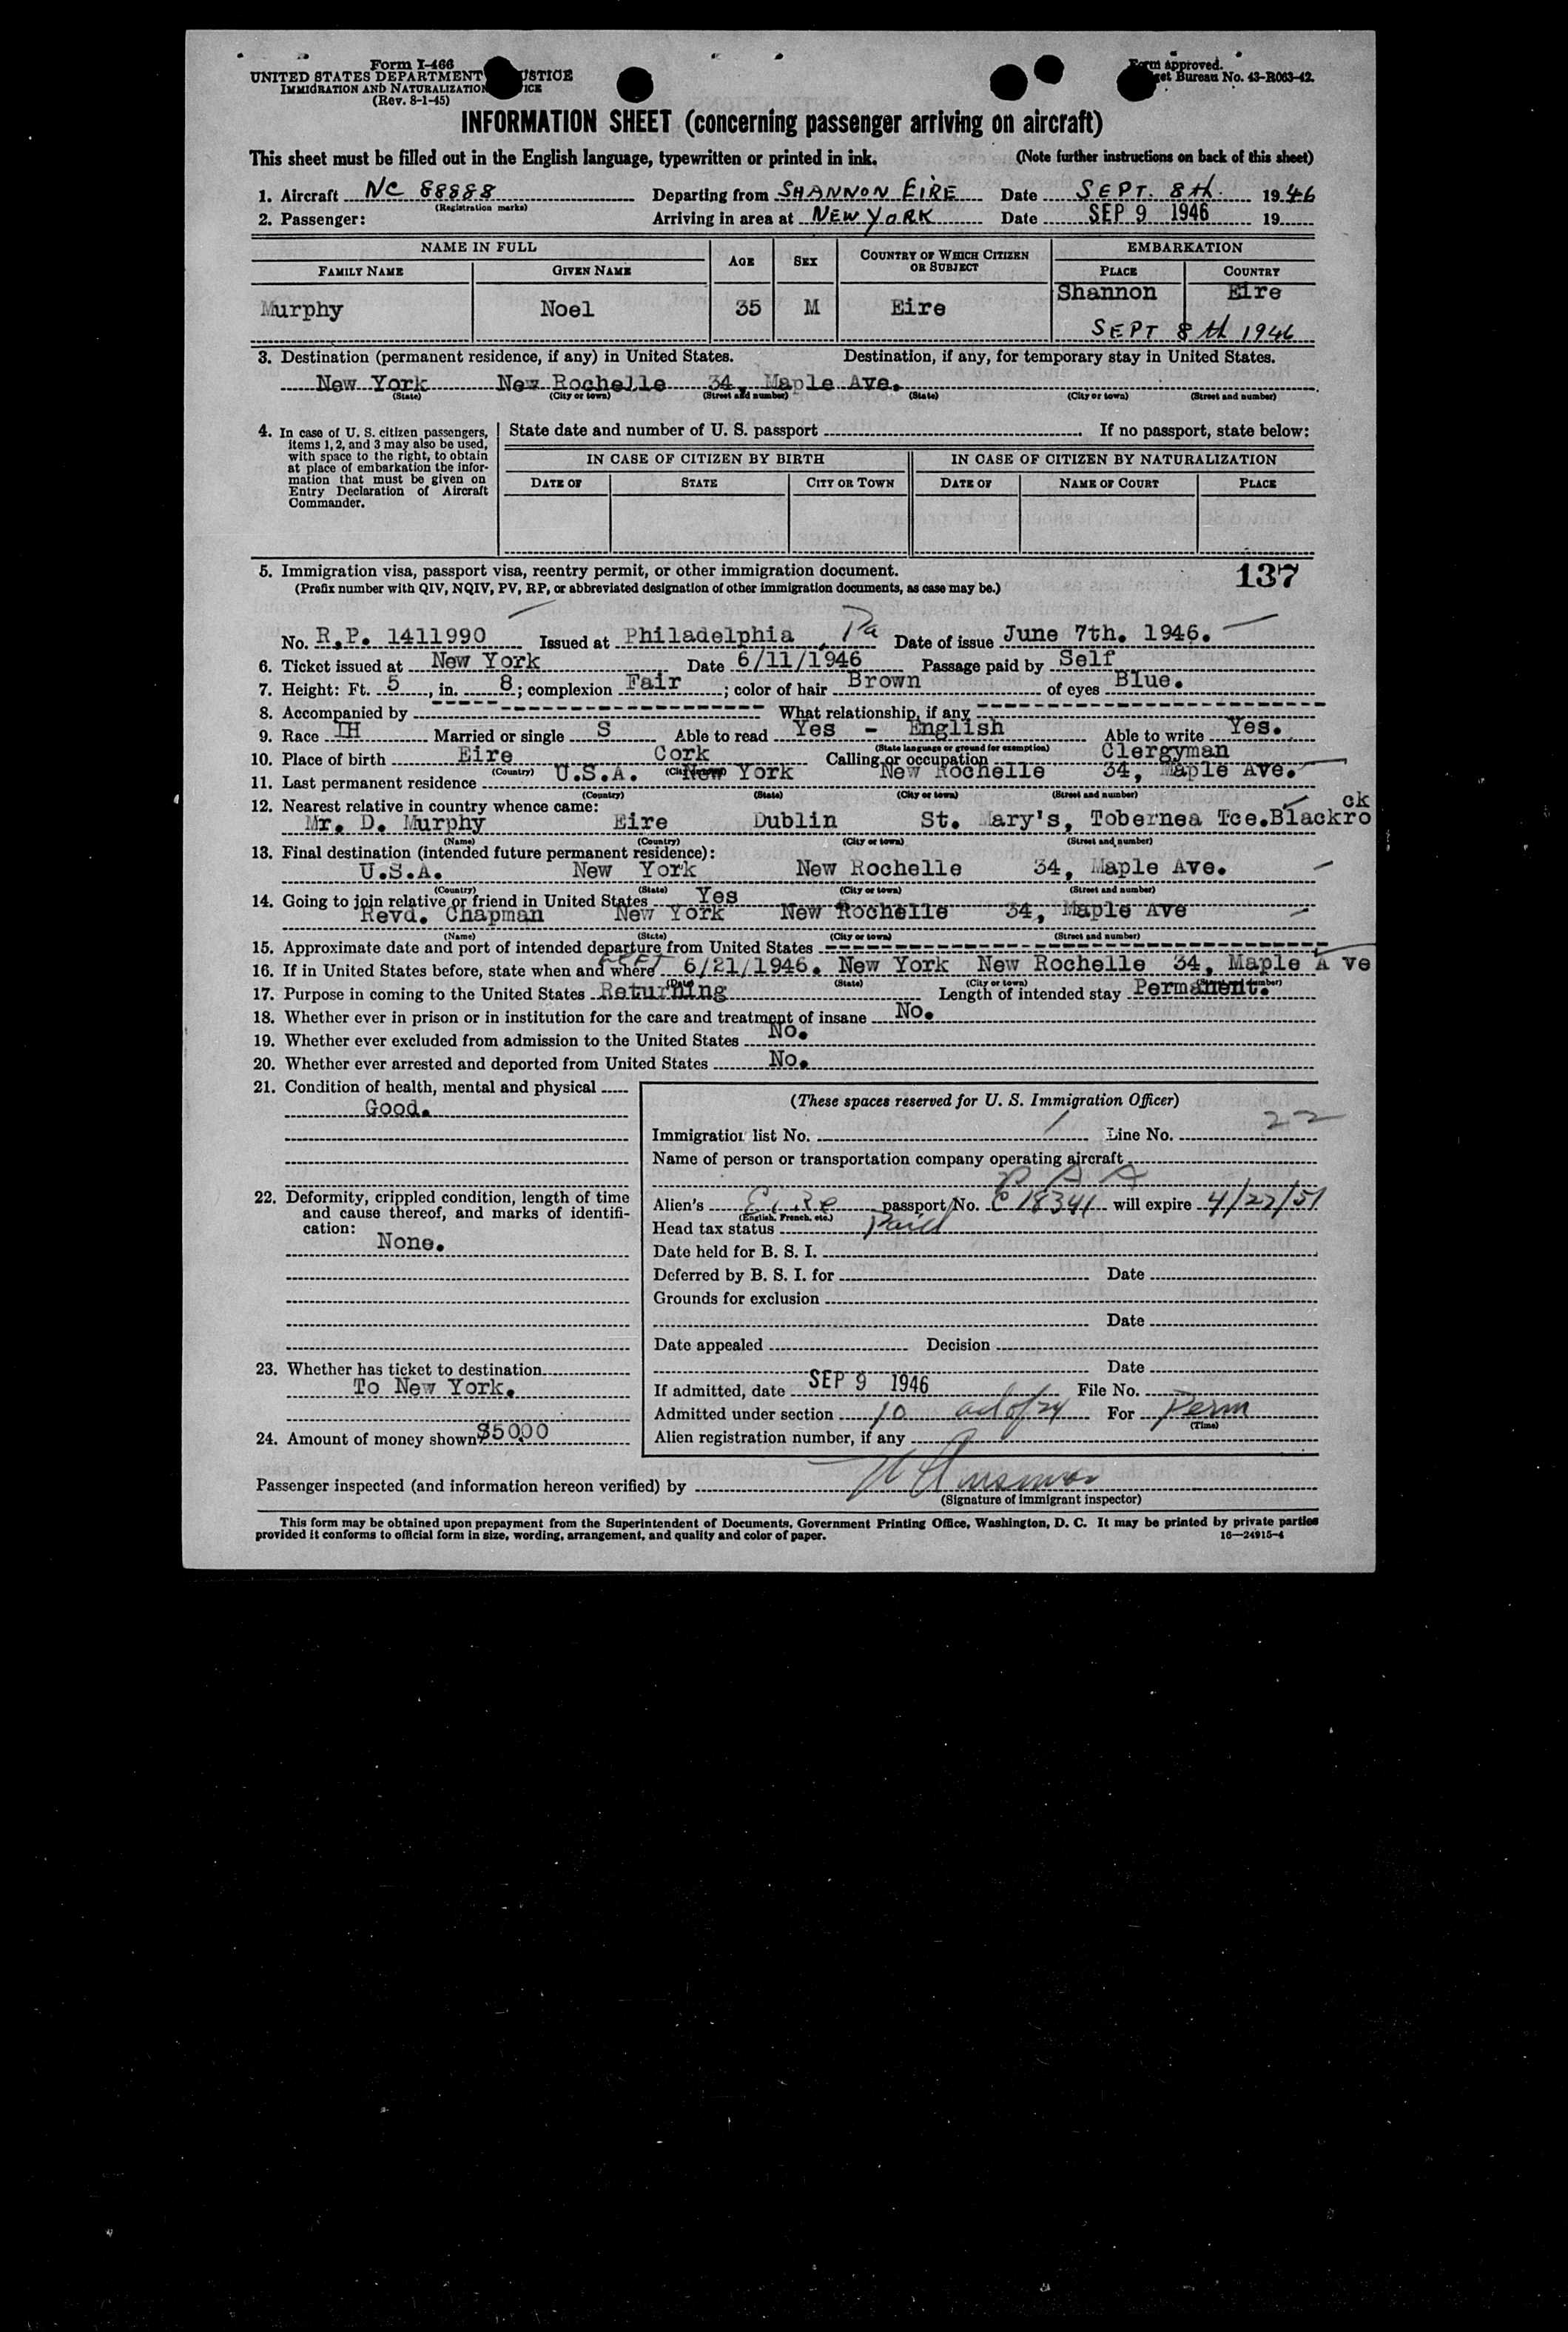 Form I-466
UNITED STATES DEPARTMENT USTICE
IMMIGRATION AND NATURALIZATION ICE
(Rev. 8-1-45)
Form approved.
get Bureau No. 43-R063-42.
INFORMATION SHEET (concerning passenger arriving on aircraft)
This sheet must be filled out in the English language, typewritten or printed in ink. (Note further instructions on back of this sheet)
1. Aircraft NC 88888 Departing from SHANNON EIRE Date SEPT. 8th. 1946
(Registration marks)
2. Passenger: Arriving in area at NEW YORK Date SEP 9 1946 19
NAME IN FULL AGE SEX COUNTRY OF WHICH CITIZEN OR SUBJECT EMBARKATION
FAMILY NAME GIVEN NAME PLACE COUNTRY
Murphy Noel 35 M Eire Shannon Eire
SEPT 8th 1946
3. Destination (permanent residence, if any) in United States. Destination, if any, for temporary stay in United States.
New York New Rochelle 34, Maple Ave.
(State) (City or town) (Street and number) (State) (City or town) (Street and number)
4. In case of U. S. citizen passengers, items 1, 2, and 3 may also be used, with space to the right, to obtain at place of embarkation the information that must be given on Entry Declaration of Aircraft Commander.
State date and number of U. S. passport If no passport, state below:
IN CASE OF CITIZEN BY BIRTH IN CASE OF CITIZEN BY NATURALIZATION
DATE OF STATE CITY OR TOWN DATE OF NAME OF COURT PLACE
5. Immigration visa, passport visa, reentry permit, or other immigration document. 137
(Prefix number with QIV, NQIV, PV, RP, or abbreviated designation of other immigration documents, as case may be.)
No. R.P. 1411990 Issued at Philadelphia, Pa Date of issue June 7th. 1946.
6. Ticket issued at New York Date 6/11/1946 Passage paid by Self
7. Height: Ft. 5, in. 8; complexion Fair; color of hair Brown of eyes Blue.
8. Accompanied by What relationship, if any
9. Race IH Married or single S Able to read Yes - English Able to write Yes.
(State language or ground for exemption)
10. Place of birth Eire Cork Calling or occupation Clergyman
(Country) (City or town)
11. Last permanent residence U.S.A. New York New Rochelle 34, Maple Ave.
(Country) (State) (City or town) (Street and number)
12. Nearest relative in country whence came:
Mr. D. Murphy Eire Dublin St. Mary's, Tobernea Tce. Blackro ck
(Name) (Country) (City or town) (Street and number)
13. Final destination (intended future permanent residence):
U.S.A. New York New Rochelle 34, Maple Ave.
(Country) (State) (City or town) (Street and number)
14. Going to join relative or friend in United States Yes
Revd. Chapman New York New Rochelle 34, Maple Ave
(Name) (State) (City or town) (Street and number)
15. Approximate date and port of intended departure from United States
16. If in United States before, state when and where LEFT 6/21/1946. New York New Rochelle 34, Maple A ve
(Date) (State) (City or town) (Street and number)
17. Purpose in coming to the United States Returning Length of intended stay Permanent.
18. Whether ever in prison or in institution for the care and treatment of insane No.
19. Whether ever excluded from admission to the United States No.
20. Whether ever arrested and deported from United States No.
21. Condition of health, mental and physical
Good.
22. Deformity, crippled condition, length of time and cause thereof, and marks of identification:
None.
23. Whether has ticket to destination
To New York.
24. Amount of money shown $50.00
(These spaces reserved for U. S. Immigration Officer)
Immigration list No. 1 Line No. 22
Name of person or transportation company operating aircraft
P A A
Alien's Eire passport No. C 18341 will expire 4/27/51
(English, French, etc.)
Head tax status Paid
Date held for B. S. I.
Deferred by B. S. I. for Date
Grounds for exclusion
Date
Date appealed Decision
Date
If admitted, date SEP 9 1946 File No.
Admitted under section 10 act of 24 For Perm
(Time)
Alien registration number, if any
Passenger inspected (and information hereon verified) by
(Signature of immigrant inspector)
This form may be obtained upon prepayment from the Superintendent of Documents, Government Printing Office, Washington, D. C. It may be printed by private parties
provided it conforms to official form in size, wording, arrangement, and quality and color of paper. 16—24915-4